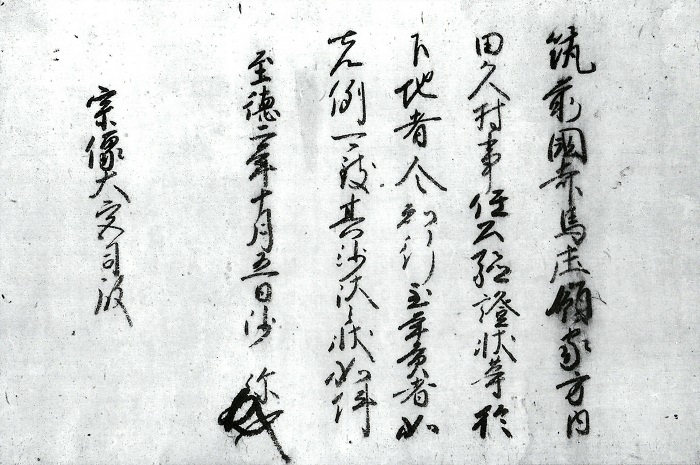 筑前國赤馬庄領家方内
田久村事任公驗證状等於
下地者令知行至年貢者如
先例可致其沙汰之状如件
至徳二年十月五日沙弥
宗像大宮司殿